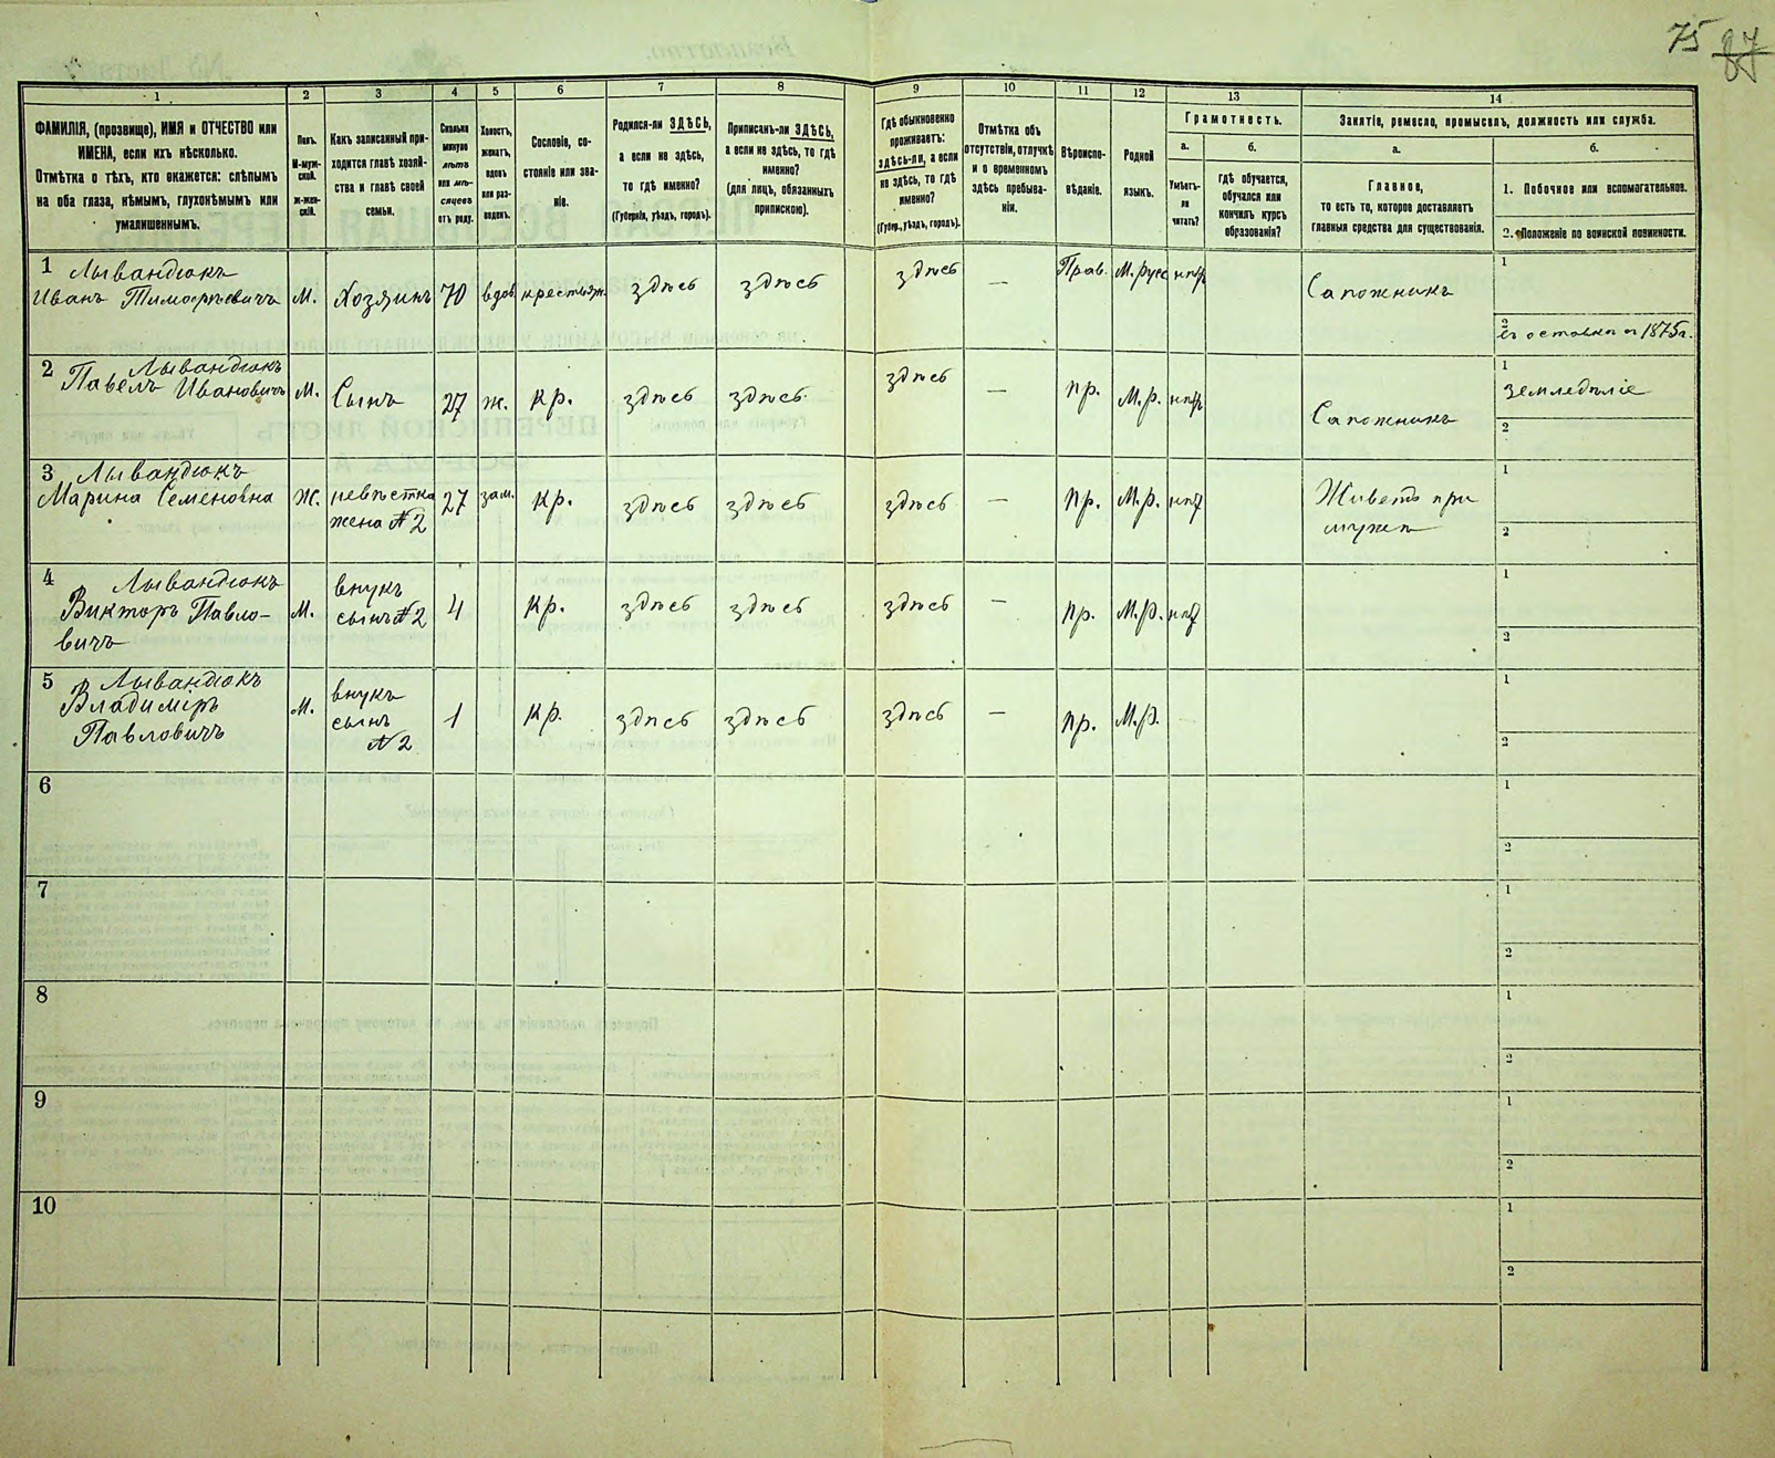 75 87
1 2 3 4 5 6 7 8 9 10 11 12 13 14
ФАМИЛІЯ, (прозвище), ИМЯ и ОТЧЕСТВО или
ИМЕНА, если ихъ нѣсколько.
Отмѣтка о тѣхъ, кто окажется: слѣпымъ
на оба глаза, нѣмымъ, глухонѣмымъ или
умалишеннымъ.
Полъ.
М-муж-
ской.
Ж-жен-
скій.
Какъ записанный при-
ходится главѣ хозяй-
ства и главѣ своей
семьи.
Сколько
минуло
лѣтъ
или мѣ-
сяцевъ
отъ роду.
Холостъ,
женатъ,
вдовъ
или раз-
веденъ.
Сословіе, со-
стояніе или зва-
ніе.
Родился-ли ЗДѢСЬ,
а если не здѣсь,
то гдѣ именно?
(Губернія, уѣздъ, городъ).
Приписанъ-ли ЗДѢСЬ,
а если не здѣсь, то гдѣ
именно?
(для лицъ, обязанныхъ
припискою).
Гдѣ обыкновенно
проживаетъ:
здѣсь-ли, а если
не здѣсь, то гдѣ
именно?
(Губер., уѣздъ, городъ).
Отмѣтка объ
отсутствіи, отлучкѣ
и о временномъ
здѣсь пребыва-
ніи.
Вѣроиспо-
вѣданіе.
Родной
языкъ.
Грамотность.
а.
Умѣетъ-
ли
читать?
б.
Гдѣ обучается,
обучался или
кончилъ курсъ
образованія?
Занятіе, ремесло, промыселъ, должность или служба.
а.
Главное,
то есть то, которое доставляетъ
главныя средства для существованія.
б.
1. Побочное или вспомогательное.
2. Положеніе по воинской повинности.
1 Лывандюкъ
Иванъ Тимофѣевичъ М. Хозяинъ 70 вдов. крестьян. здѣсь здѣсь здѣсь — Прав. М. русс. Сапожникъ 1
2 1875г.
2 Лывандюкъ
Павелъ Ивановичъ М. Сынъ 27 ж. Кр. здѣсь здѣсь здѣсь — пр. М.р. Сапожникъ 1 земледѣліе
2
3 Лывандюкъ
Марина Семеновна Ж. невѣстка 27 зам. Кр. здѣсь здѣсь здѣсь — пр. М.р. Живетъ при 1
жена №2 мужѣ 2
4 Лывандюкъ
Викторъ Павло-
вичъ М. внукъ
сынъ №2 4 Кр. здѣсь здѣсь здѣсь — пр. М.р. 1
2
5 Лывандюкъ
Владиміръ
Павловичъ М. внукъ
сынъ
№2 1 Кр. здѣсь здѣсь здѣсь — пр. М.р. 1
2
6 1
2
7 1
2
8 1
2
9 1
2
10 1
2